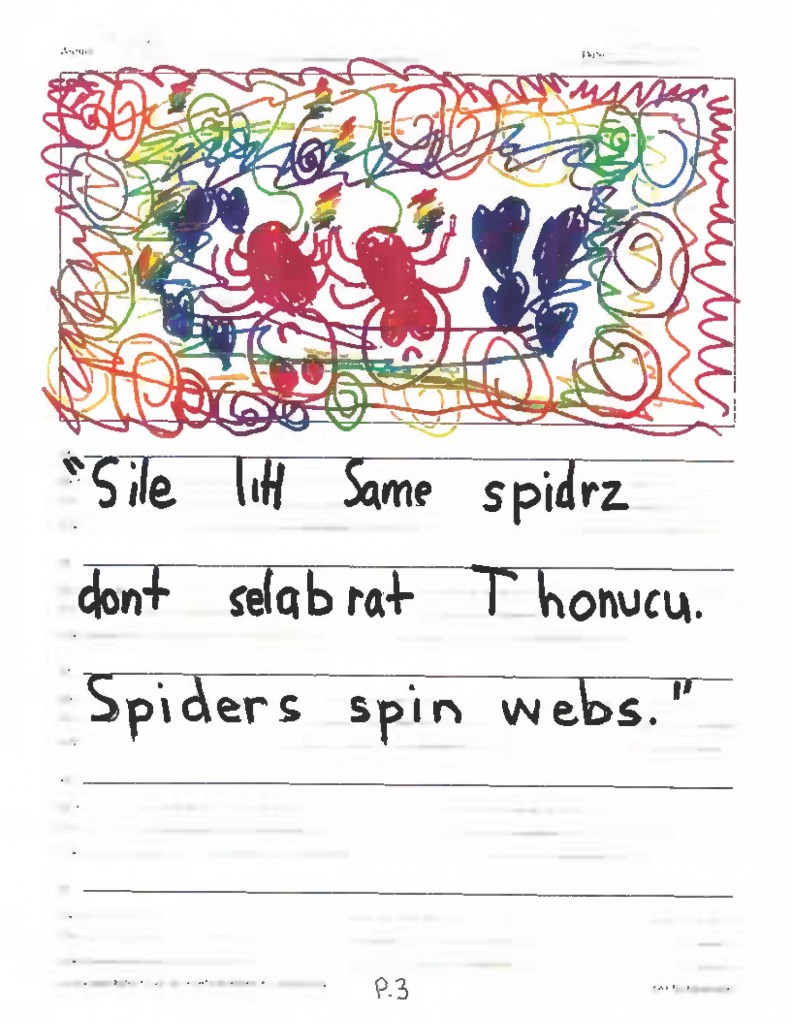 "Sile litt Same spidrz
dont selabrat Thonucu.
Spiders spin webs."
P.3